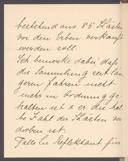 bestehend aus 85 Kästen
vor den Erben verkauft
werden soll.
Ich bemerke dabei, daß
die Sammlung seit lan-
geren Jahren nicht
mehr in Ordnung ge-
halten ist u. er die hal-
be Zahl der Kästen ver-
dorben ist.
Falls Sie Reflektant für